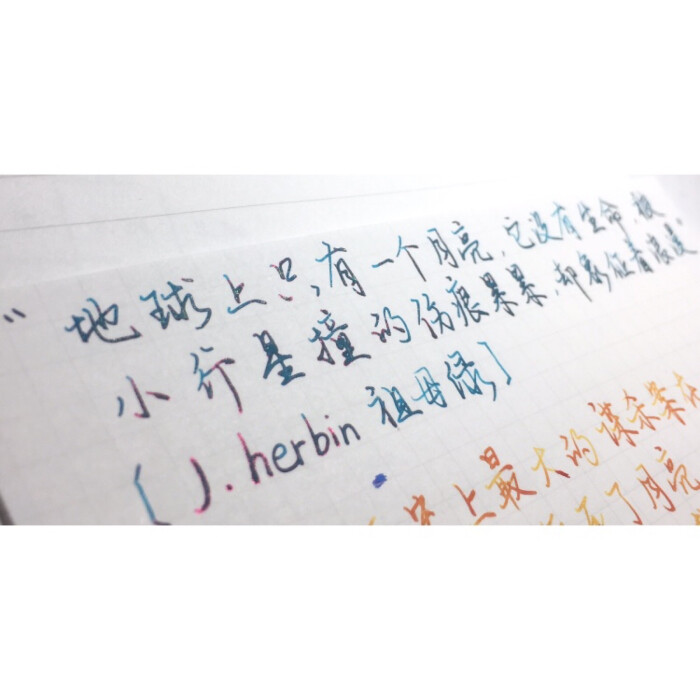 “地球上只有一个月亮,它没有生命,被
小行星撞的伤痕累累,却象征着浪漫。
[J.herbin 祖母绿]
史上最大的谋杀案
了月亮